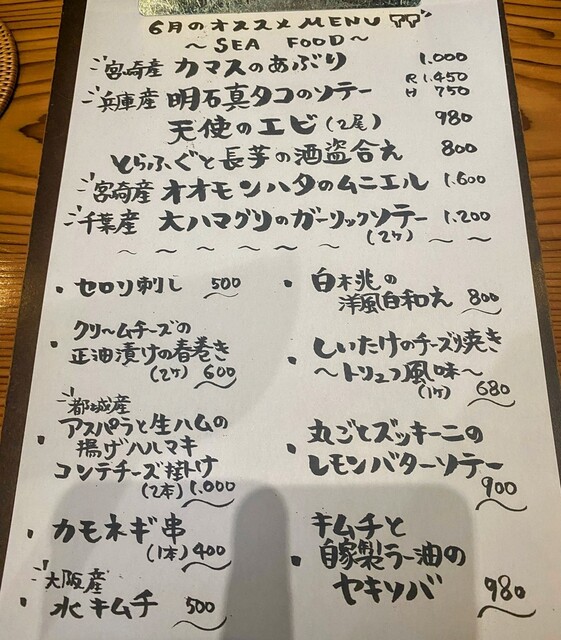 6月のオススメ MENU
～SEA FOOD～
宮崎産 カマスのあぶり 1.000
兵庫産 明石真タコのソテー R 1.450
H 750
天使のエビ(2尾) 980
とらふぐと長芋の酒盗合え 800
宮崎産 オオモンハタのムニエル 1.600
千葉産 大ハマグリのガーリックソテー 1.200
(2ヶ)
・セロリ刺し 500
クリームチーズの
正油漬けの春巻き
(2ヶ) 600
都城産
・アスパラと生ハムの
揚げハルマキ
コンテチーズ掛け
(2本) 1.000
・カモネギ串
(1本) 400
大阪産
・水キムチ 500
・白桃の
洋風白和え 800
・しいたけのチーズ焼き
～トリュフ風味～
(1ヶ) 680
・丸ごとズッキーニの
レモンバターソテー
900
・キムチと
自家製ラー油の
ヤキソバ 980